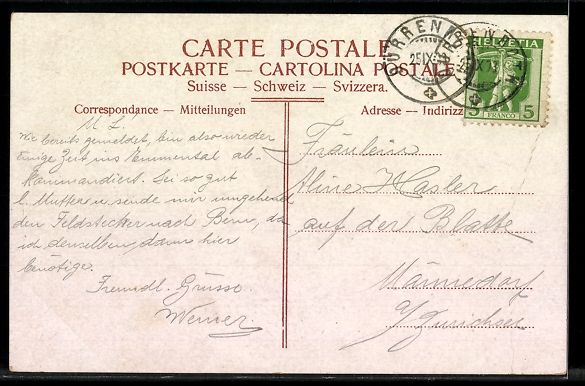 CARTE POSTALE
POSTKARTE — CARTOLINA POSTALE
Suisse — Schweiz — Svizzera.
Correspondance — Mitteilungen
Adresse — Indirizz
HELVETIA
5 FRANCO 5
DÜRRENROTH
25 IX
M. L.
Wie bereits gemeldet, bin also wieder
einige Zeit ins Emmental ab-
kommandiert. Sei so gut
l. Mutter u. sende mir umgehend
den Feldstecker nach Bern, da
ich denselben dann hier
benötige.
Freundl. Grüsse
Werner.
Fräulein
Aline Hasler
auf der Blatte
Männedorf
a/Zürichsee